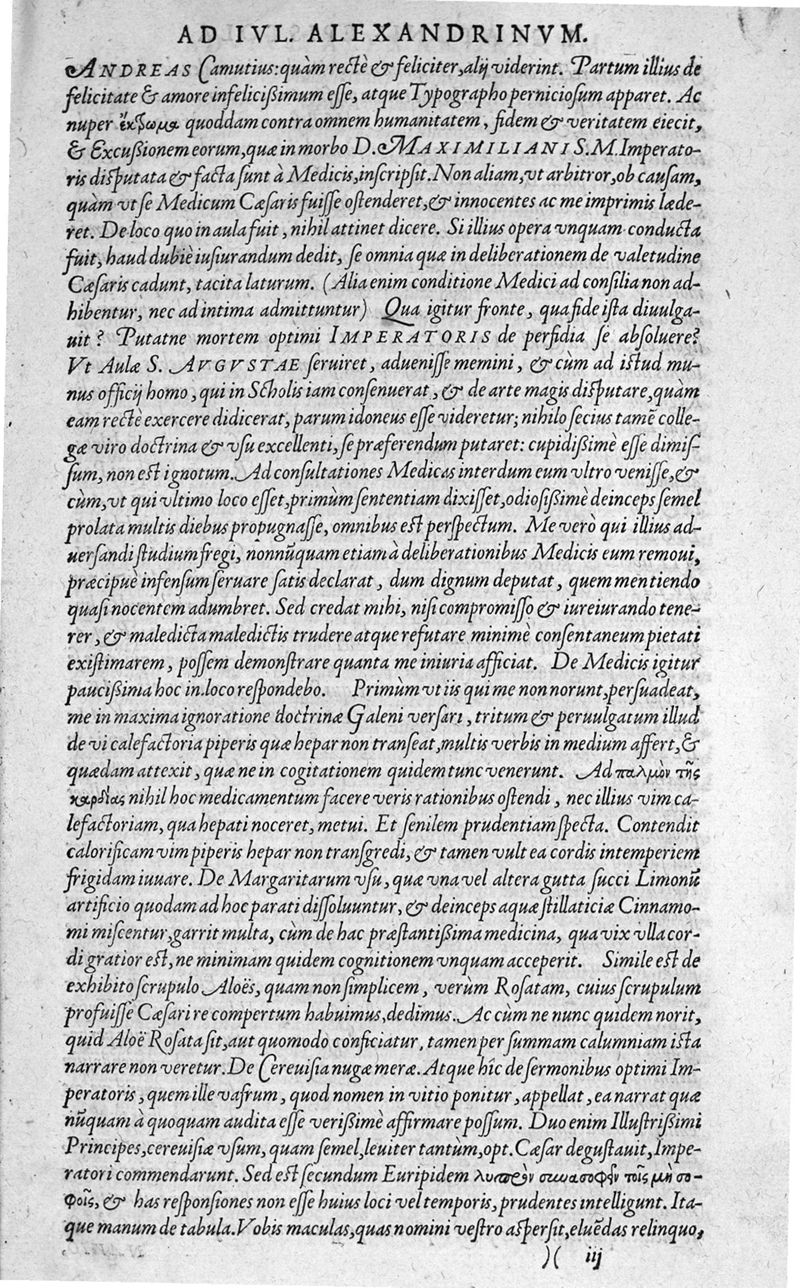 AD IVL. ALEXANDRINVM.
ANDREAS Camutius: quàm rectè & feliciter, alij viderint. Partum illius de
felicitate & amore infelicißimum esse, atque Typographo perniciosum apparet. Ac
nuper ἔκτρωμα quoddam contra omnem humanitatem, fidem & veritatem eiecit,
& Excußionem eorum, quæ in morbo D. MAXIMILIANI S. M. Imperato-
ris disputata & facta sunt à Medicis, inscripsit. Non aliam, vt arbitror, ob causam,
quàm vt se Medicum Cæsaris fuisse ostenderet, & innocentes ac me imprimis læde-
ret. De loco quo in aula fuit, nihil attinet dicere. Si illius opera vnquam conducta
fuit, haud dubiè iusiurandum dedit, se omnia quæ in deliberationem de valetudine
Cæsaris cadunt, tacita laturum. (Alia enim conditione Medici ad consilia non ad-
hibentur, nec ad intima admittuntur) Qua igitur fronte, qua fide ista diuulga-
uit? Putatne mortem optimi IMPERATORIS de perfidia se absoluere?
Vt Aulæ S. AVGVSTAE seruiret, aduenisse memini, & cùm ad istud mu-
nus officij homo, qui in Scholis iam consenuerat, & de arte magis disputare, quàm
eam rectè exercere didicerat, parum idoneus esse videretur; nihilo secius tamẽ colle-
gæ viro doctrina & vsu excellenti, se præferendum putaret: cupidißimè esse dimis-
sum, non est ignotum. Ad consultationes Medicas interdum eum vltro venisse, &
cùm, vt qui vltimo loco esset, primùm sententiam dixisset, odiosißimè deinceps semel
prolata multis diebus propugnasse, omnibus est perspectum. Me verò qui illius ad-
uersandi studium fregi, nonnũquam etiam à deliberationibus Medicis eum remoui,
præcipuè infensum seruare satis declarat, dum dignum deputat, quem mentiendo
quasi nocentem adumbret. Sed credat mihi, nisi compromisso & iureiurando tene-
rer, & maledicta maledictis trudere atque refutare minimè consentaneum pietati
existimarem, possem demonstrare quanta me iniuria afficiat. De Medicis igitur
paucißima hoc in loco respondebo. Primùm vt iis qui me non norunt, persuadeat,
me in maxima ignoratione doctrinæ Galeni versari, tritum & peruulgatum illud
de vi calefactoria piperis quæ hepar non transeat, multis verbis in medium affert, &
quædam attexit, quæ ne in cogitationem quidem tunc venerunt. Ad παλμὸν τῆς
καρδίας nihil hoc medicamentum facere veris rationibus ostendi, nec illius vim ca-
lefactoriam, qua hepati noceret, metui. Et senilem prudentiam specta. Contendit
calorificam vim piperis hepar non transgredi, & tamen vult ea cordis intemperiem
frigidam iuuare. De Margaritarum vsu, quæ vna vel altera gutta succi Limonũ
artificio quodam ad hoc parati dissoluuntur, & deinceps aquæ stillaticiæ Cinnamo-
mi miscentur, garrit multa, cùm de hac præstantißima medicina, qua vix vlla cor-
di gratior est, ne minimam quidem cognitionem vnquam acceperit. Simile est de
exhibito scrupulo Aloës, quam non simplicem, verùm Rosatam, cuius scrupulum
profuisse Cæsari re compertum habuimus, dedimus. Ac cùm ne nunc quidem norit,
quid Aloë Rosata sit, aut quomodo conficiatur, tamen per summam calumniam ista
narrare non veretur. De Cereuisia nugæ meræ. Atque hîc de sermonibus optimi Im-
peratoris, quem ille vafrum, quod nomen in vitio ponitur, appellat, ea narrat quæ
nũquam à quoquam audita esse verißimè affirmare possum. Duo enim Illustrißimi
Principes, cereuisiæ vsum, quam semel, leuiter tantùm, opt. Cæsar degustauit, Impe-
ratori commendarunt. Sed est secundum Euripidem λυπρὸν σωασοφὴν τοῖς μὴ σο-
φοῖς, & has responsiones non esse huius loci vel temporis, prudentes intelligunt. Ita-
que manum de tabula. Vobis maculas, quas nomini vestro aspersit, eluẽdas relinquo,
)( iij